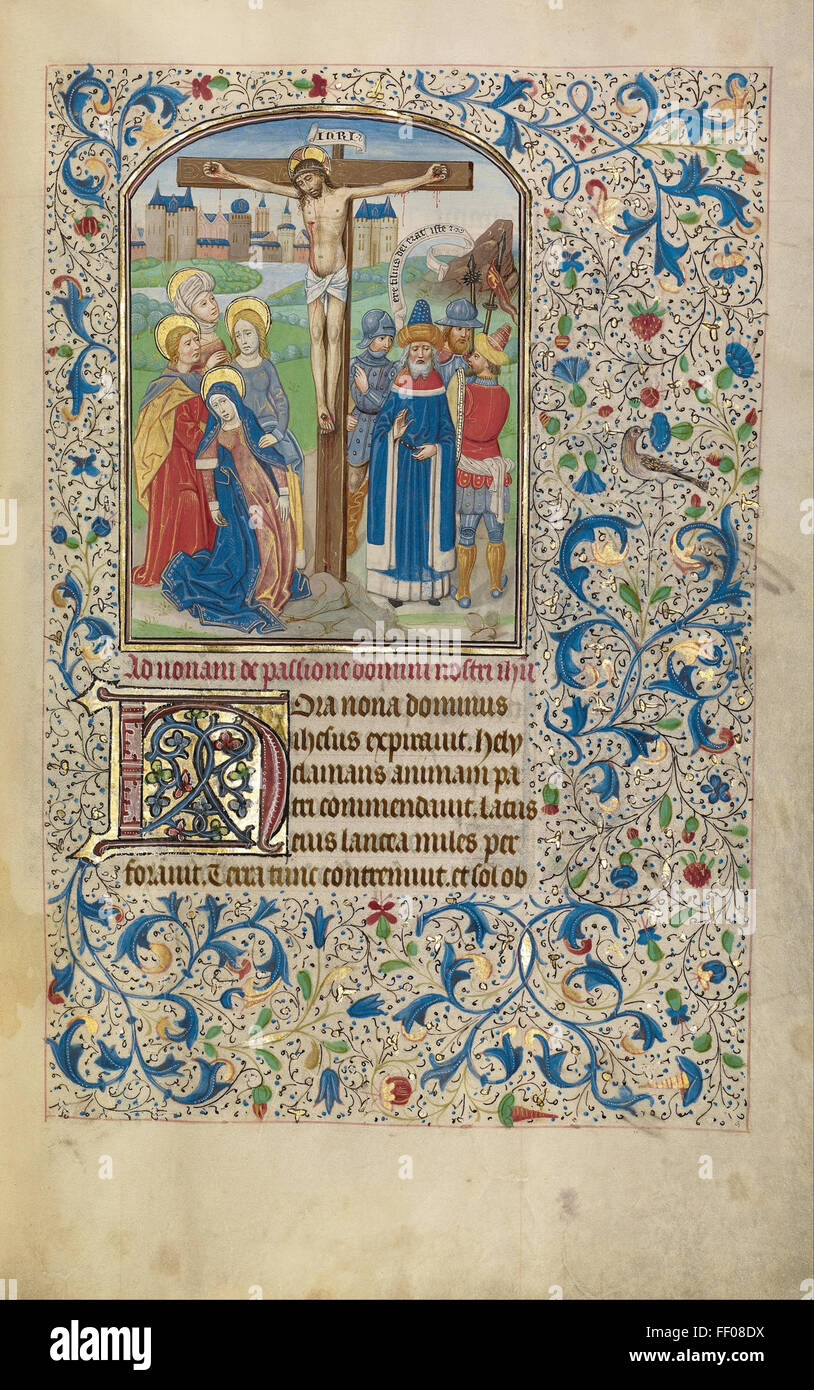 INRI
ere filius dei erat iste
Ad nonam de passione domini nostri ihu
Hora nona dominus
ihesus expiravit. hely
clamans animam pa
tri commendavit. latus
eius lancea miles per
foravit. terra tunc contremuit. et sol ob
a
alamy
a
alamy
alamy
Image ID: FF08DX
www.alamy.com